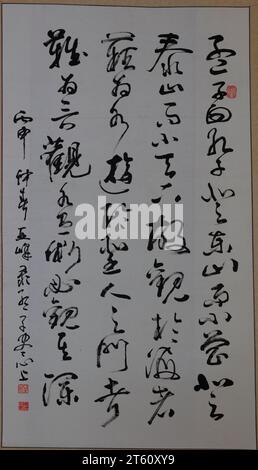 孟子曰孔子登東山而小魯登
泰山而小天下故觀於海者
難为水遊於聖人之門者
難为言觀水有術必觀其瀾
丙申仲春五峰录孟子尽心上
alamy
www.alamy.com - 2T60XY9